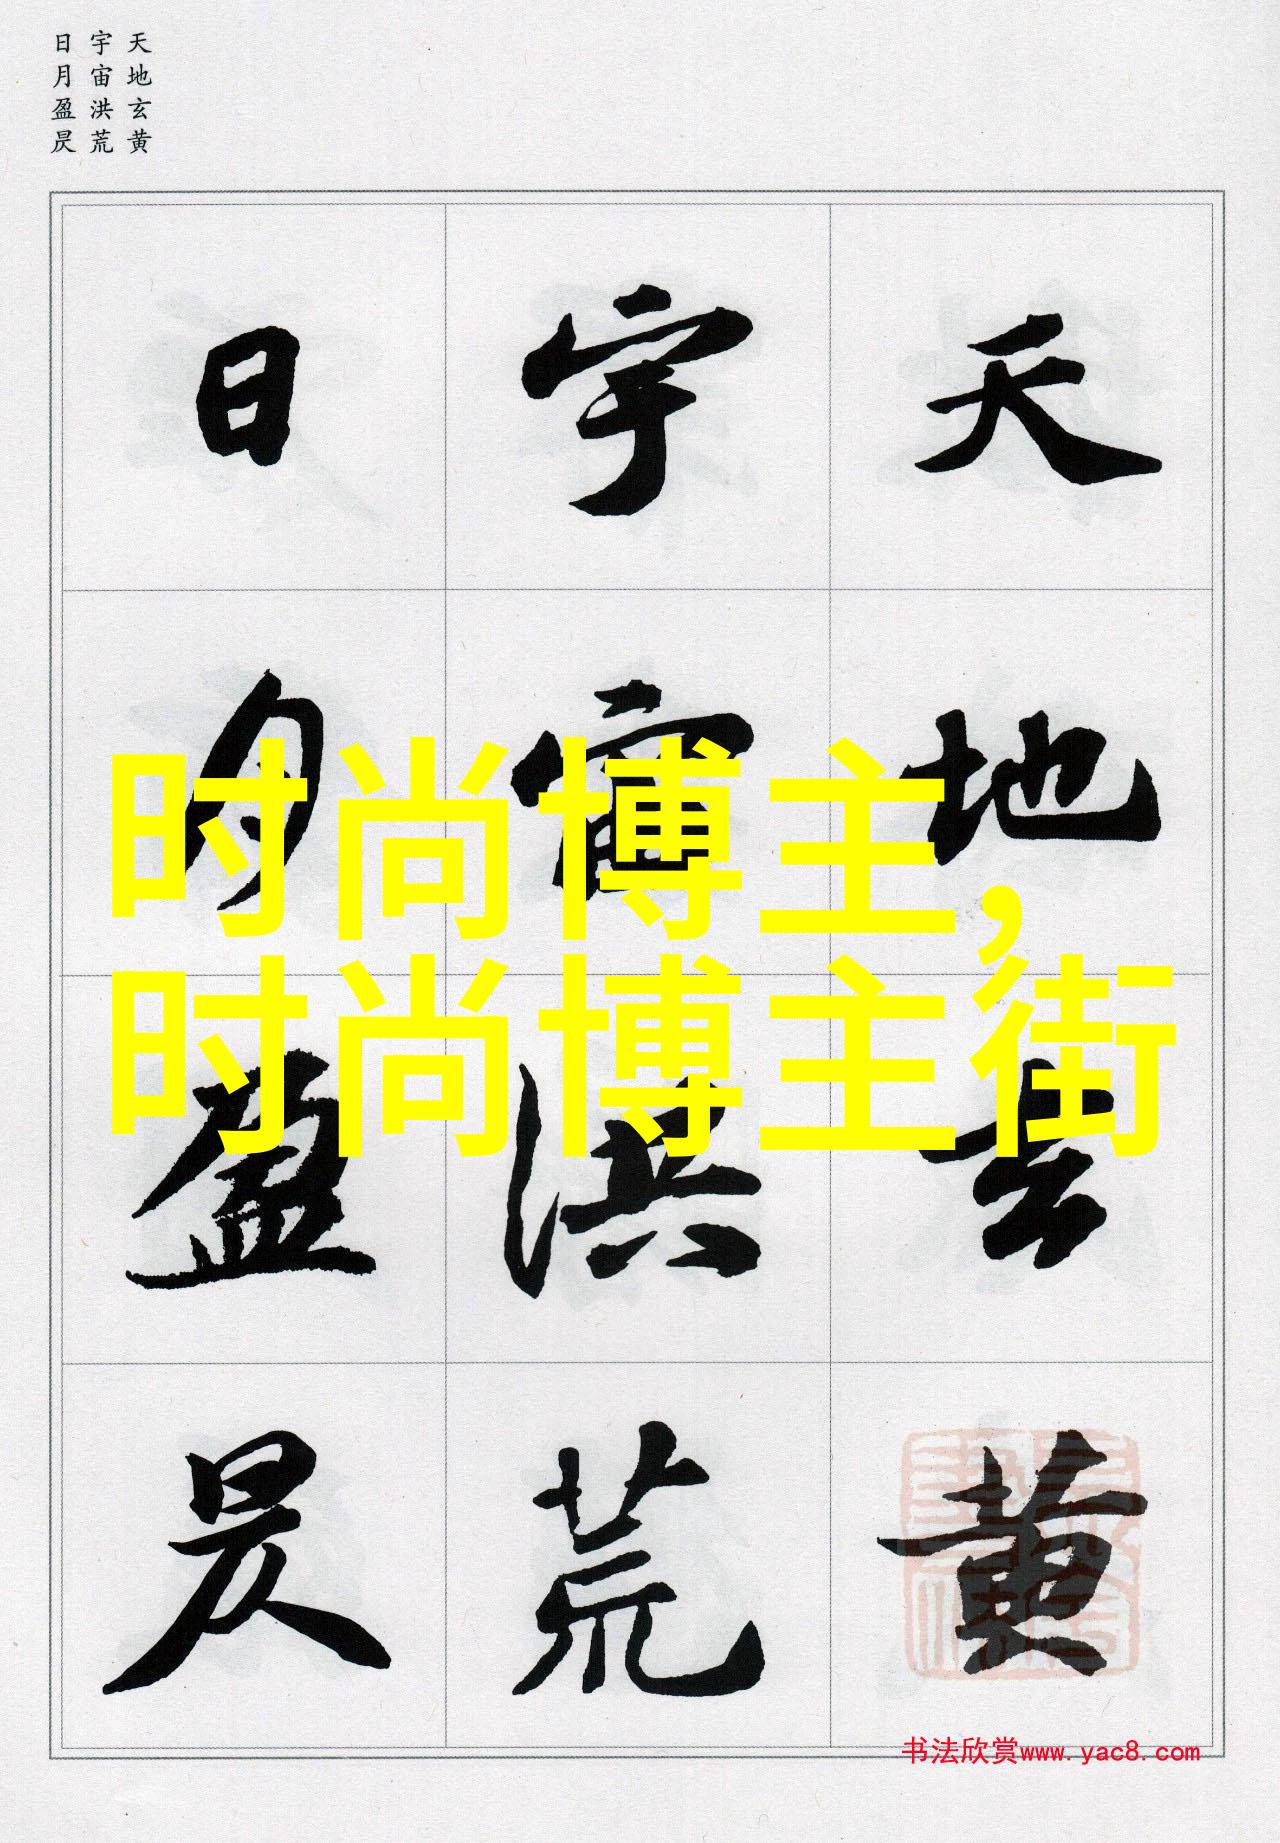 天地玄黄
宇宙洪荒
日月盈昃
天地玄黄
宇宙洪荒
日月盈昃
时尚博主,
时尚博主街
书法欣赏www.yac8.com